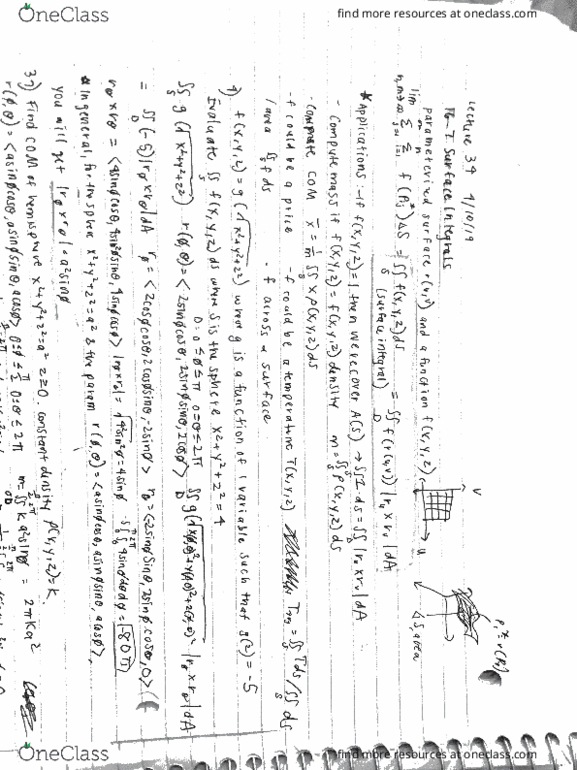 OneClass
find more resources at oneclass.com
Lecture 34 4/10/19
16.7 Surface Integrals
parameterized surface r(u,v) and a function f(x,y,z)
lim n,m→∞ Σ Σ f(Pij*) ΔS = ∬ f(x,y,z) ds = ∬ f(r(u,v)) |ru × rv| dA
(surface integral)
*Applications: - if f(x,y,z)=1 then we recover A(S) → ∬ 1 ds = ∬ |ru × rv| dA
- Compute mass if f(x,y,z) = density m = ∬ ρ(x,y,z) ds
- compute COM x̄ = 1/m ∬ x ρ(x,y,z) ds
- f could be a price - f could be a temperature T(x,y,z) Tavg = ∬ T ds / ∬ ds
/area ∬ f ds · f across a surface
f(x,y,z) = g(√x²+y²+z²) where g is a function of 1 variable such that g(2) = -5
Evaluate ∬ f(x,y,z) ds where S is the sphere x²+y²+z² = 4
0 ≤ φ ≤ π 0 ≤ θ ≤ 2π
∬ g(√x²+y²+z²) r(φ,θ) = <2sinφcosθ, 2sinφsinθ, 2cosφ>
= ∬ (-5) |rφ × rθ| dA rφ = <2cosφcosθ, 2cosφsinθ, -2sinφ> rθ = <-2sinφsinθ, 2sinφcosθ, 0>
rφ × rθ = <4sin²φcosθ, 4sin²φsinθ, 4sinφcosφ> |rφ × rθ| = √4sin²φ = 4sinφ
-80π
* In general, for the sphere x²+y²+z² = a² & the param r(φ,θ) = <asinφcosθ, asinφsinθ, acosφ>,
you will get |rφ × rθ| = a²sinφ
37) Find COM of hemisphere x²+y²+z² = a² z≥0. constant density ρ(x,y,z) = k.
r(φ,θ) = <asinφcosθ, asinφsinθ, acosφ> 0≤φ≤π/2 0≤θ≤2π m = ∬ k a²sinφ = 2πka²
OneClass
find more resources at oneclass.com